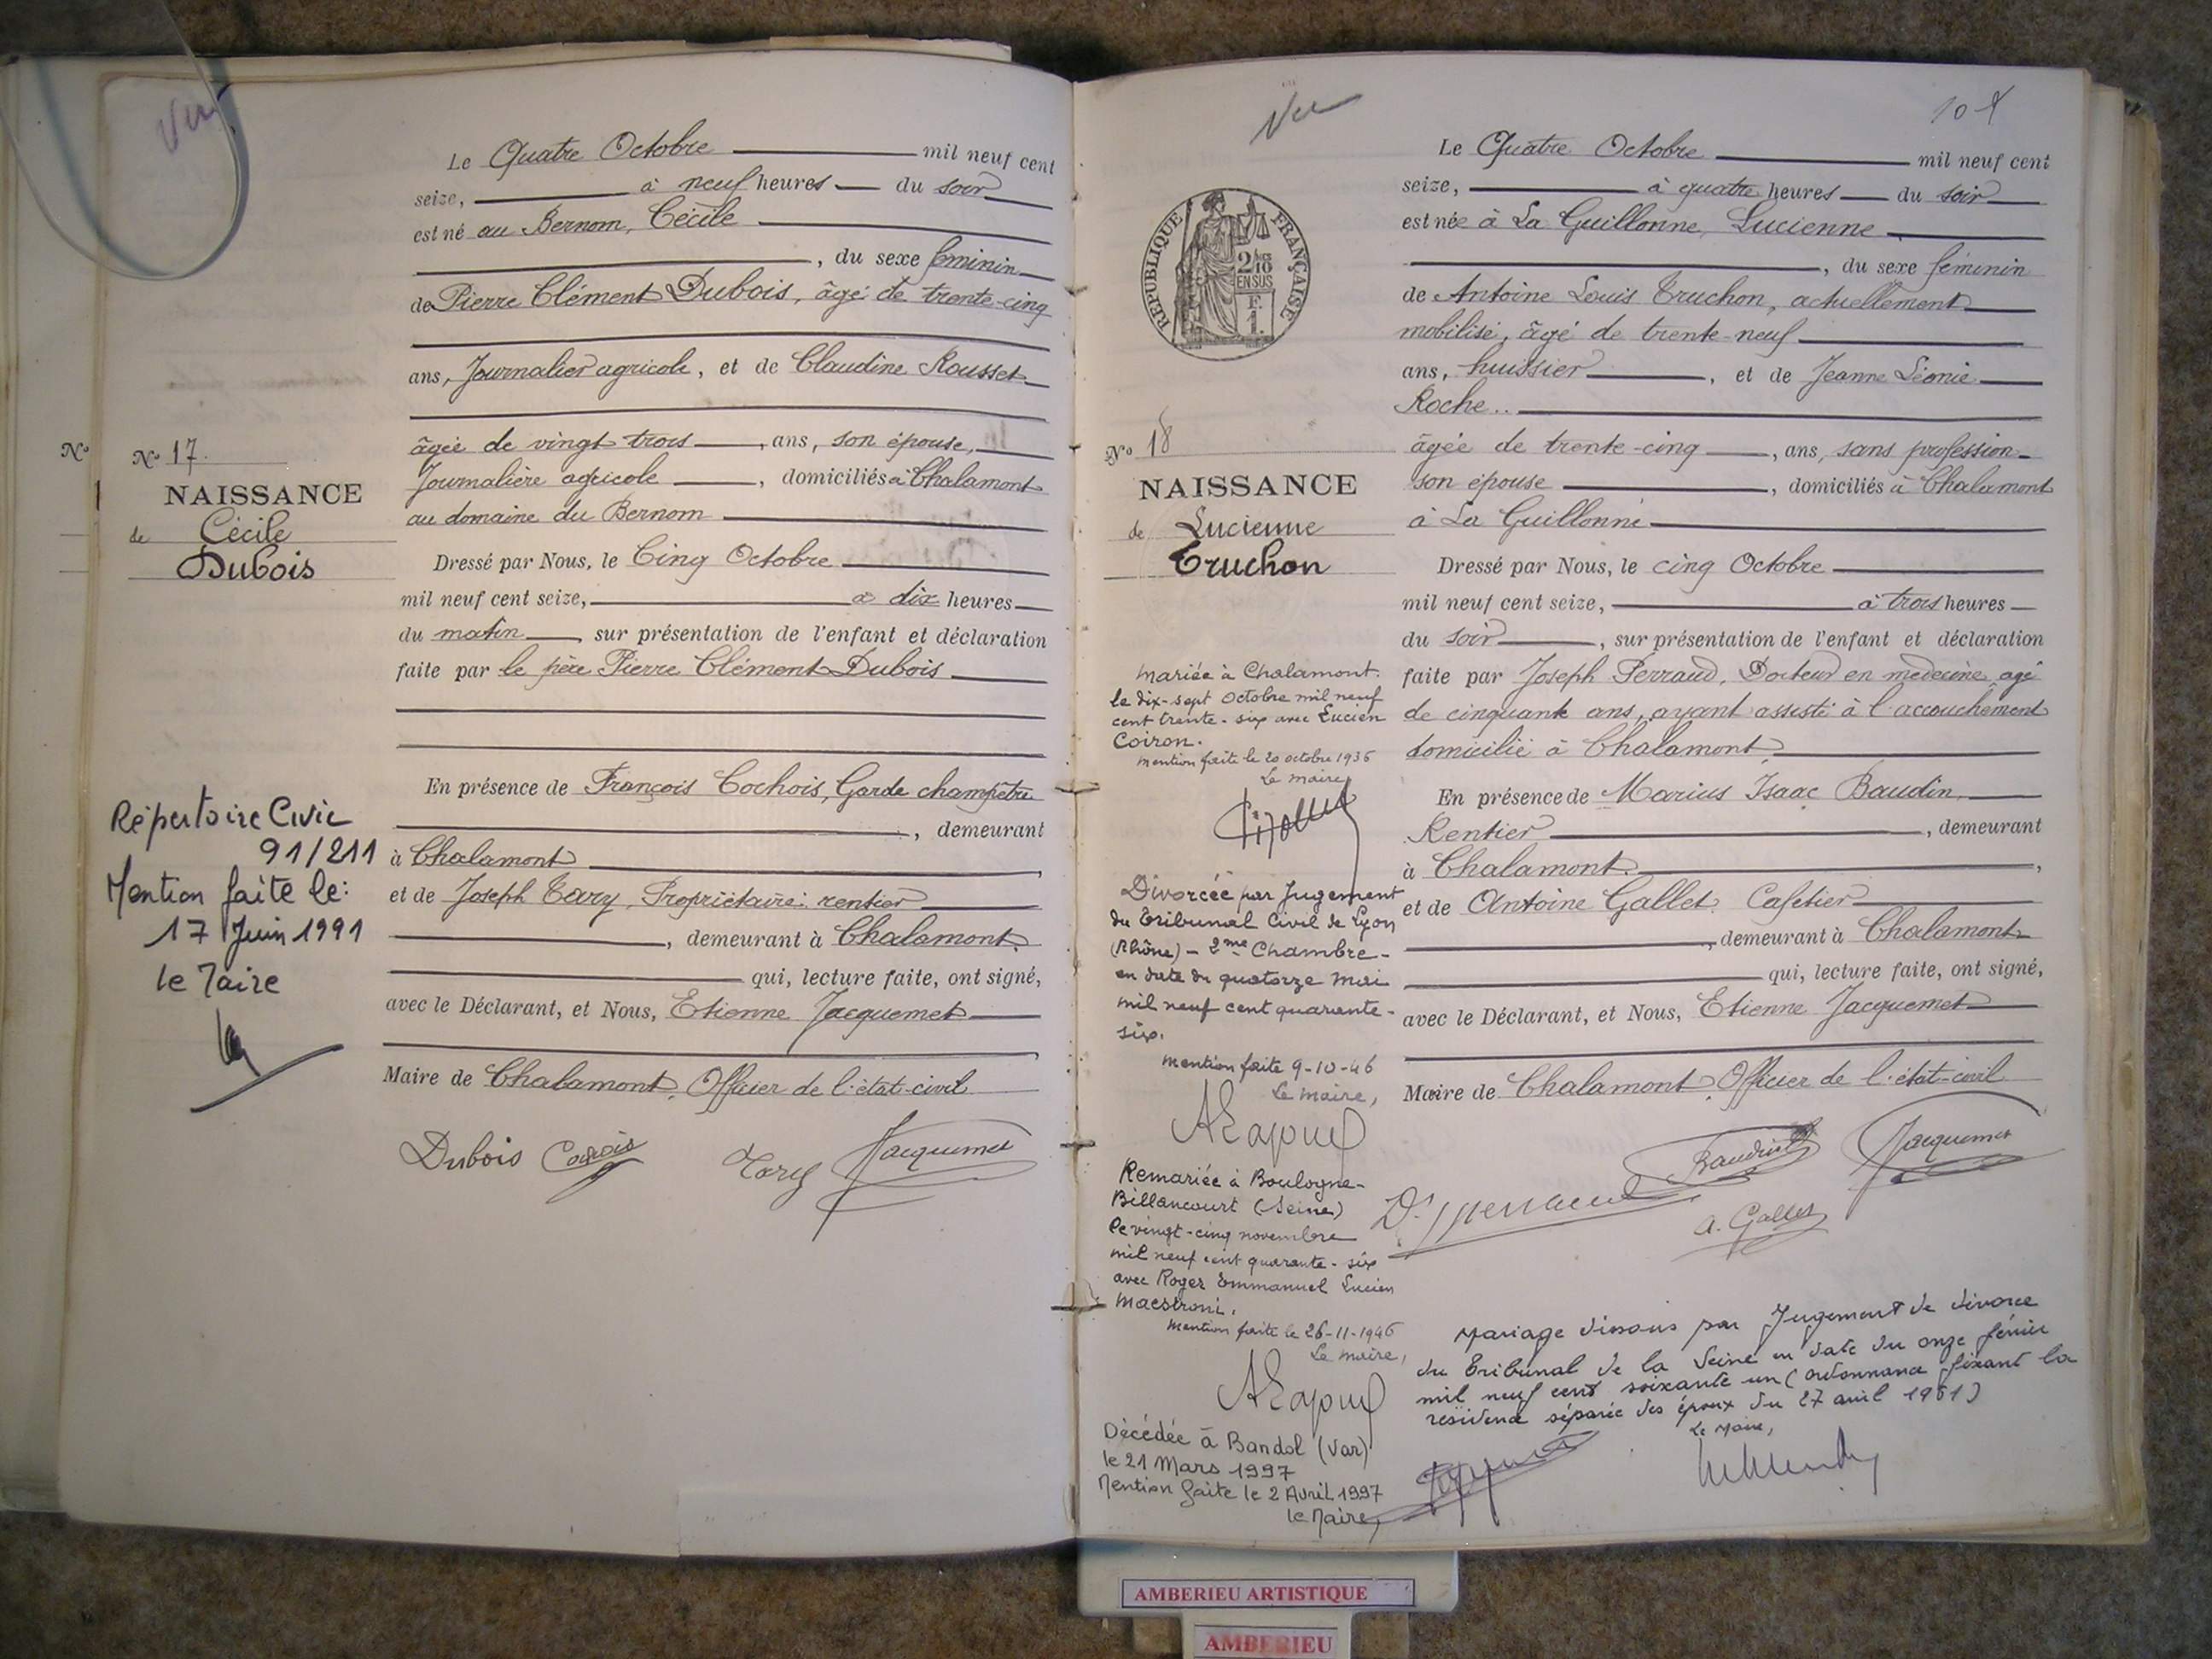 Vu
Le Quatre Octobre mil neuf cent
seize, à neuf heures du soir
est né au Bernom, Cécile
, du sexe féminin
de Pierre Clément Dubois, âgé de trente-cinq
ans, Journalier agricole, et de Claudine Rousset
âgée de vingt trois, ans, son épouse,
Journalière agricole, domiciliés à Chalamont
au domaine du Bernom
Dressé par Nous, le Cinq Octobre
mil neuf cent seize, à dix heures
du matin, sur présentation de l'enfant et déclaration
faite par le père Pierre Clément Dubois
En présence de François Cochois, Garde champêtre
, demeurant
à Chalamont,
et de Joseph Tavy, Propriétaire rentier
, demeurant à Chalamont,
qui, lecture faite, ont signé,
avec le Déclarant, et Nous, Etienne Jacquemet
Maire de Chalamont, Officier de l'état-civil
Dubois Cochois Tavy Jacquemet
No
No 17.
NAISSANCE
de Cécile
Dubois
Répertoire Civic
91/211
Mention faite le:
17 Juin 1991
le Maire
Vu
108
Le Quatre Octobre mil neuf cent
seize, à quatre heures du soir
est née à La Guillonne, Lucienne
, du sexe féminin
de Antoine Louis Truchon, actuellement
mobilisé, âgé de trente-neuf
ans, huissier, et de Jeanne Léonie
Roche..
âgée de trente-cinq, ans, sans profession
son épouse, domiciliés à Chalamont
à La Guillonne
Dressé par Nous, le cinq Octobre
mil neuf cent seize, à trois heures
du soir, sur présentation de l'enfant et déclaration
faite par Joseph Perraud, Docteur en médecine, âgé
de cinquante ans, ayant assisté à l'accouchement
domicilié à Chalamont
En présence de Marius Isaac Baudin,
Rentier, demeurant
à Chalamont,
et de Antoine Gallet Cafetier
, demeurant à Chalamont
qui, lecture faite, ont signé,
avec le Déclarant, et Nous, Etienne Jacquemet
Maire de Chalamont, Officier de l'état-civil
Baudin Jacquemet
Dr Perraud
A. Gallet
RÉPUBLIQUE FRANÇAISE
2/10
EN SUS
F
1.
No 18
NAISSANCE
de Lucienne
Truchon
Mariée à Chalamont.
le dix-sept Octobre mil neuf
cent trente-six avec Lucien
Coiron.
Mention faite le 20 octobre 1936
Le maire
Divorcée par Jugement
du Tribunal Civil de Lyon
(Rhône) - 2me Chambre -
en date du quatorze Mai
mil neuf cent quarante-
six.
Mention faite 9-10-46
Le maire,
Remariée à Boulogne-
Billancourt (Seine)
le vingt-cinq novembre
mil neuf cent quarante-six
avec Roger Emmanuel Lucien
Maestroni.
Mention faite le 26-11-1946
Le maire,
Décédée à Bandol (Var)
le 21 Mars 1997
Mention faite le 2 Avril 1997
le Maire,
Mariage dissous par Jugement de divorce
du Tribunal de la Seine en date du onze février
mil neuf cent soixante un (ordonnance fixant la
résidence séparée des époux du 27 avril 1961)
Le Maire,
AMBERIEU ARTISTIQUE
AMBERIEU